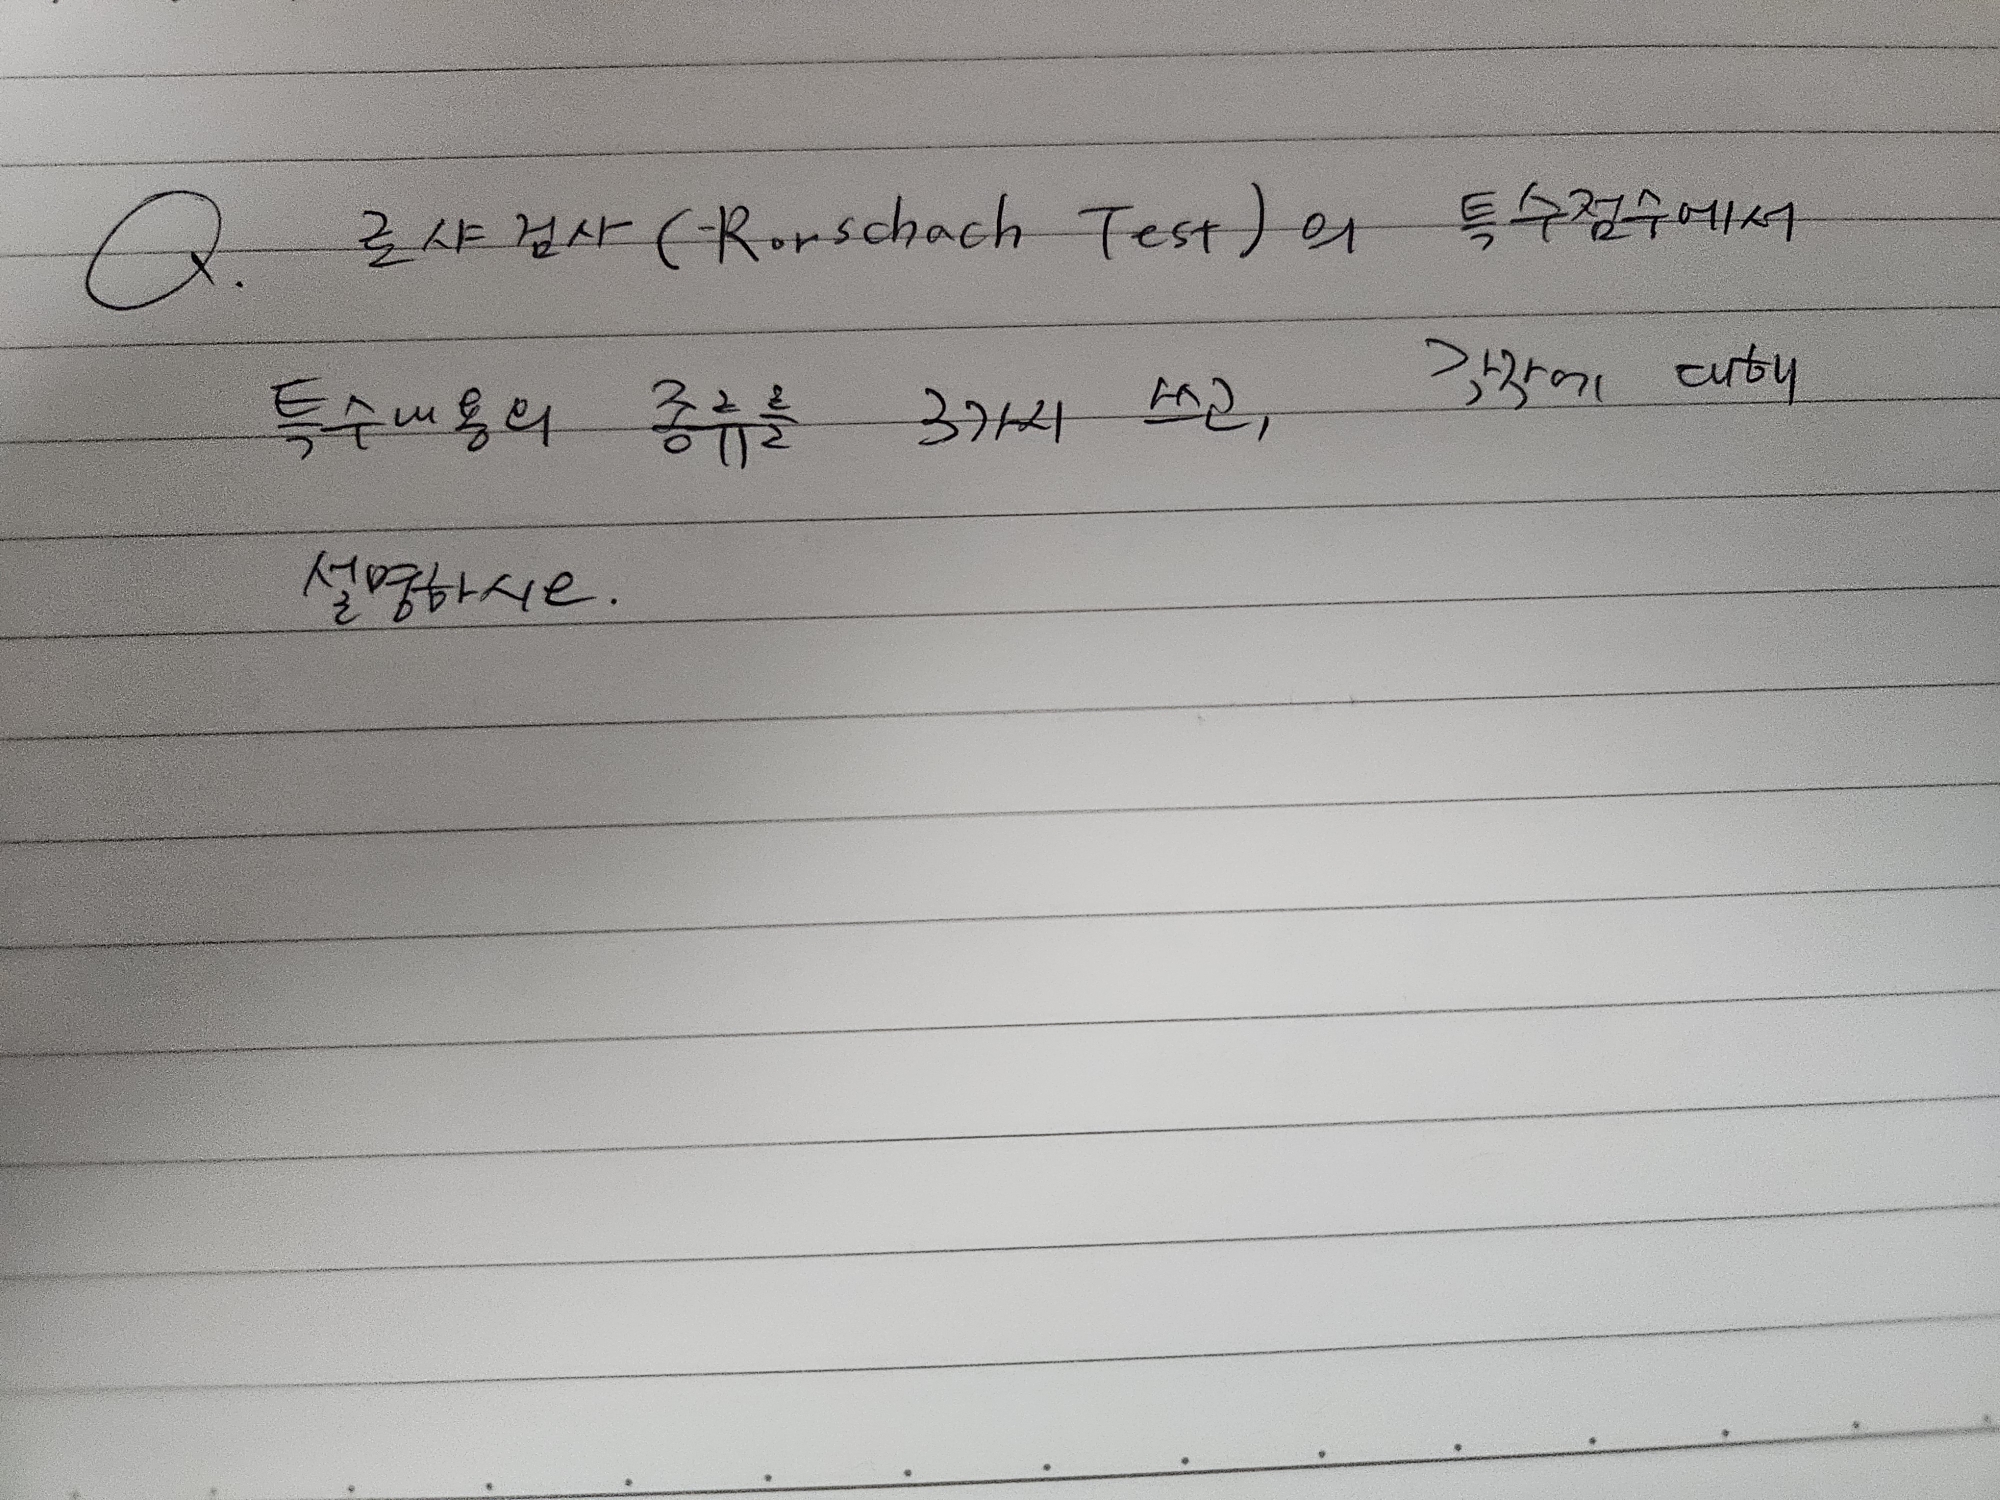 Q. 로샤검사(Rorschach Test)의 특수점수에서
특수내용의 종류를 3가지 쓰고, 각각에 대해
설명하시오.